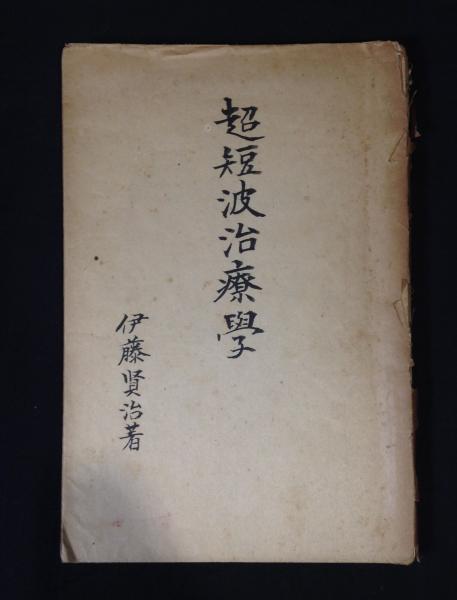 超短波治療學
伊藤賢治著